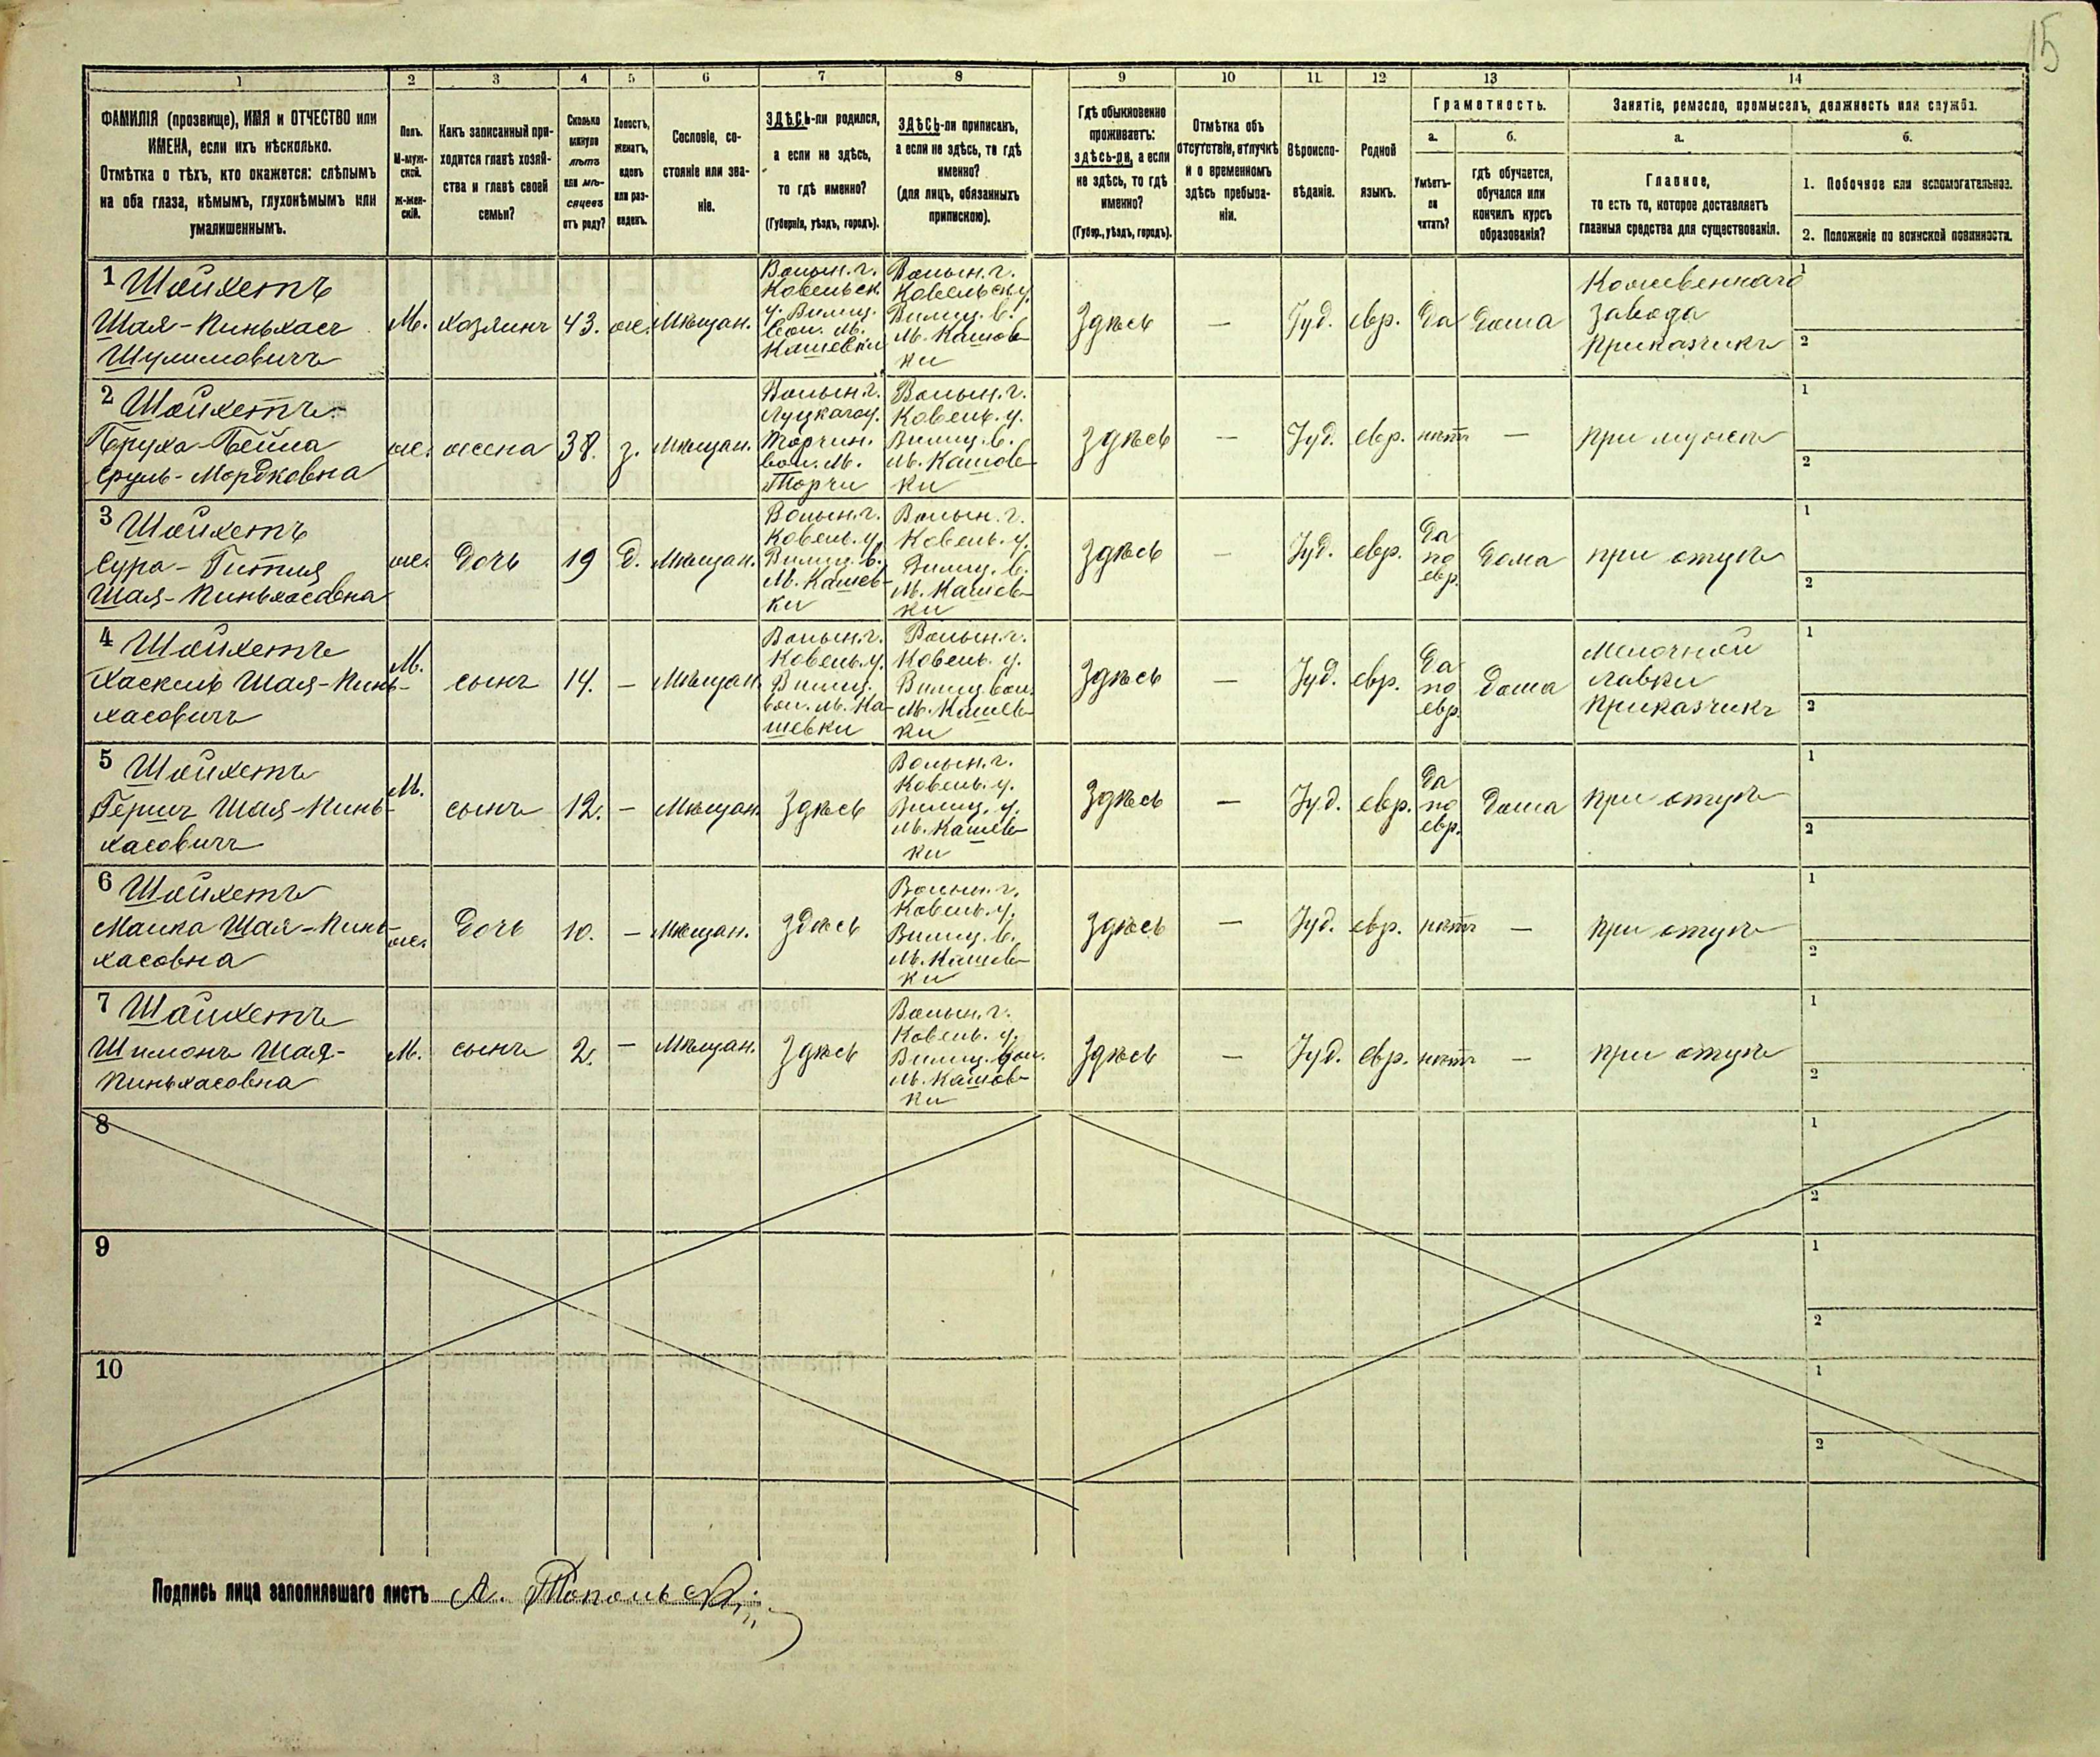 15
1
2
3
4
5
6
7
8
9
10
11
12
13
14
ФАМИЛІЯ (прозвище), ИМЯ и ОТЧЕСТВО или
ИМЕНА, если ихъ нѣсколько.
Отмѣтка о тѣхъ, кто окажется: слѣпымъ
на оба глаза, нѣмымъ, глухонѣмымъ или
умалишеннымъ.
Полъ.
М-муж-
ской.
Ж-жен-
скій.
Какъ записанный при-
ходится главѣ хозяй-
ства и главѣ своей
семьи?
Сколько
минуло
лѣтъ
или мѣ-
сяцевъ
отъ роду?
Холостъ,
женатъ,
вдовъ
или раз-
веденъ.
Сословіе, со-
стояніе или зва-
ніе.
ЗДѢСЬ-ли родился,
а если не здѣсь,
то гдѣ именно?
(Губернія, уѣздъ, городъ).
ЗДѢСЬ-ли приписанъ,
а если не здѣсь, то гдѣ
именно?
(для лицъ, обязанныхъ
припискою).
Гдѣ обыкновенно
проживаетъ:
здѣсь-ли, а если
не здѣсь, то гдѣ
именно?
(Губер., уѣздъ, городъ).
Отмѣтка объ
отсутствіи, отлучкѣ
и о временномъ
здѣсь пребыва-
ніи.
Вѣроиспо-
вѣданіе.
Родной
языкъ.
Грамотность.
а.
Умѣетъ-
ли
читать?
б.
гдѣ обучается,
обучался или
кончилъ курсъ
образованія?
Занятіе, ремесло, промыселъ, должность или служба.
а.
Главное,
то есть то, которое доставляетъ
главныя средства для существованія.
б.
1. Побочное или вспомогательное.
2. Положеніе по воинской повинности.
1 Шойхетъ
Шая-Пиньхасъ
Шулимовичъ
М.
хозяинъ
43.
ж.
Мѣщан.
Волын. г.
Ковельск.
у.
вол. м.
Кашевки
Волын. г.
Ковельск. у.
м. Кашов-
ки
Здѣсь
—
Іуд.
евр.
Да
Дома
Кожевеннаго
завода
приказчикъ
1
2
2 Шойхетъ
Бруха-Бейла
Сруль-Мордковна
ж.
жена
38.
з.
Мѣщан.
Волын. г.
Луцкаго у.
Торчин.
вол. м.
Торчи
Волын. г.
Ковель. у.
м. Кашов-
ки
Здѣсь
—
Іуд.
евр.
нѣтъ
—
при мужѣ
1
2
3 Шойхетъ
Сура-Гитля
Шая-Пиньхасовна
ж.
Дочь
19
д.
Мѣщан.
Волын. г.
Ковель. у.
м. Кашев-
ки
Волын. г.
Ковель. у.
м. Кашев-
ки
Здѣсь
—
Іуд.
евр.
Да
по
евр.
Дома
при отцѣ
1
2
4 Шойхетъ
Хаскель Шая-Пинь-
хасовичъ
М.
сынъ
14.
—
Мѣщан.
Волын. г.
Ковель. у.
вол. м. Ка-
шевки
Волын. г.
Ковель. у.
м. Кашев-
ки
Здѣсь
—
Іуд.
евр.
Да
по
евр.
Дома
Мелочной
лавки
приказчикъ
1
2
5 Шойхетъ
Гершъ Шая-Пинь-
хасовичъ
М.
сынъ
12.
—
Мѣщан.
Здѣсь
Волын. г.
Ковель. у.
м. Кашев-
ки
Здѣсь
—
Іуд.
евр.
Да
по
евр.
Дома
при отцѣ
1
2
6 Шойхетъ
Малка Шая-Пинь-
хасовна
ж.
Дочь
10.
—
Мѣщан.
Здѣсь
Волын. г.
Ковель. у.
м. Кашев-
ки
Здѣсь
—
Іуд.
евр.
нѣтъ
—
при отцѣ
1
2
7 Шойхетъ
Шимонъ Шая-
Пиньхасовна
М.
сынъ
2.
—
Мѣщан.
Здѣсь
Волын. г.
Ковель. у.
м. Кашов-
ки
Здѣсь
—
Іуд.
евр.
нѣтъ
—
при отцѣ
1
2
8
1
2
9
1
2
10
1
2
Подпись лица заполнявшаго листъ А. Топольскій